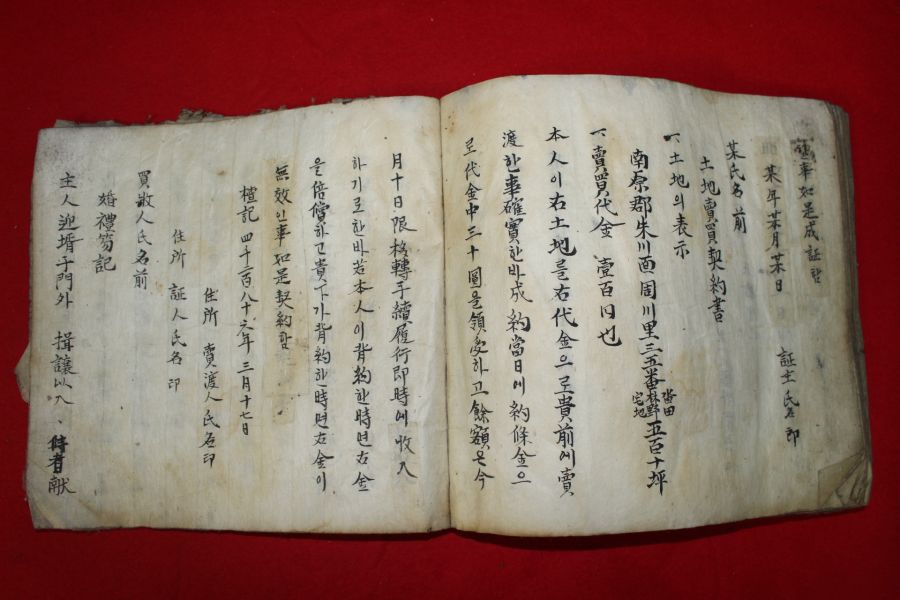 事如是成証함
某年某月某日
証主 氏名 印
某氏名前
土地賣買契約書
一 土地의表示
南原郡朱川面周川里三五番 畓田 林野 宅地 五百十坪
一 賣買代金 壹百円也
本人이右土地를右代金으로貴前에賣
渡한事確實한바成約當日에約條金으
로代金中三十圓을領受하고餘額은今
月十日限移轉手續履行即時에收入
하기로한바若本人이背約한時면右金
을倍償하고貴下가背約한時면右金이
無效인事如是契約함
檀記四千二百八十六年三月十七日
住所 賣渡人氏名印
住所 証人氏名印
買收人氏名前
婚禮笏記
主人迎壻于門外 揖讓以入、侍者献